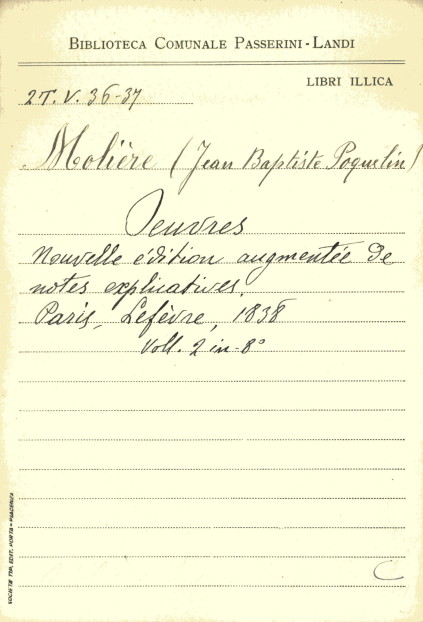 BIBLIOTECA COMUNALE PASSERINI-LANDI
LIBRI ILLICA
2T. V. 36-37
Molière (Jean Baptiste Poquelin)
Oeuvres
Nouvelle édition augmentée de
notes explicatives.
Paris, Lefèvre, 1838
Voll. 2 in-8°
C
SOCIETÀ TIP. EDIT. PORTA - PIACENZA